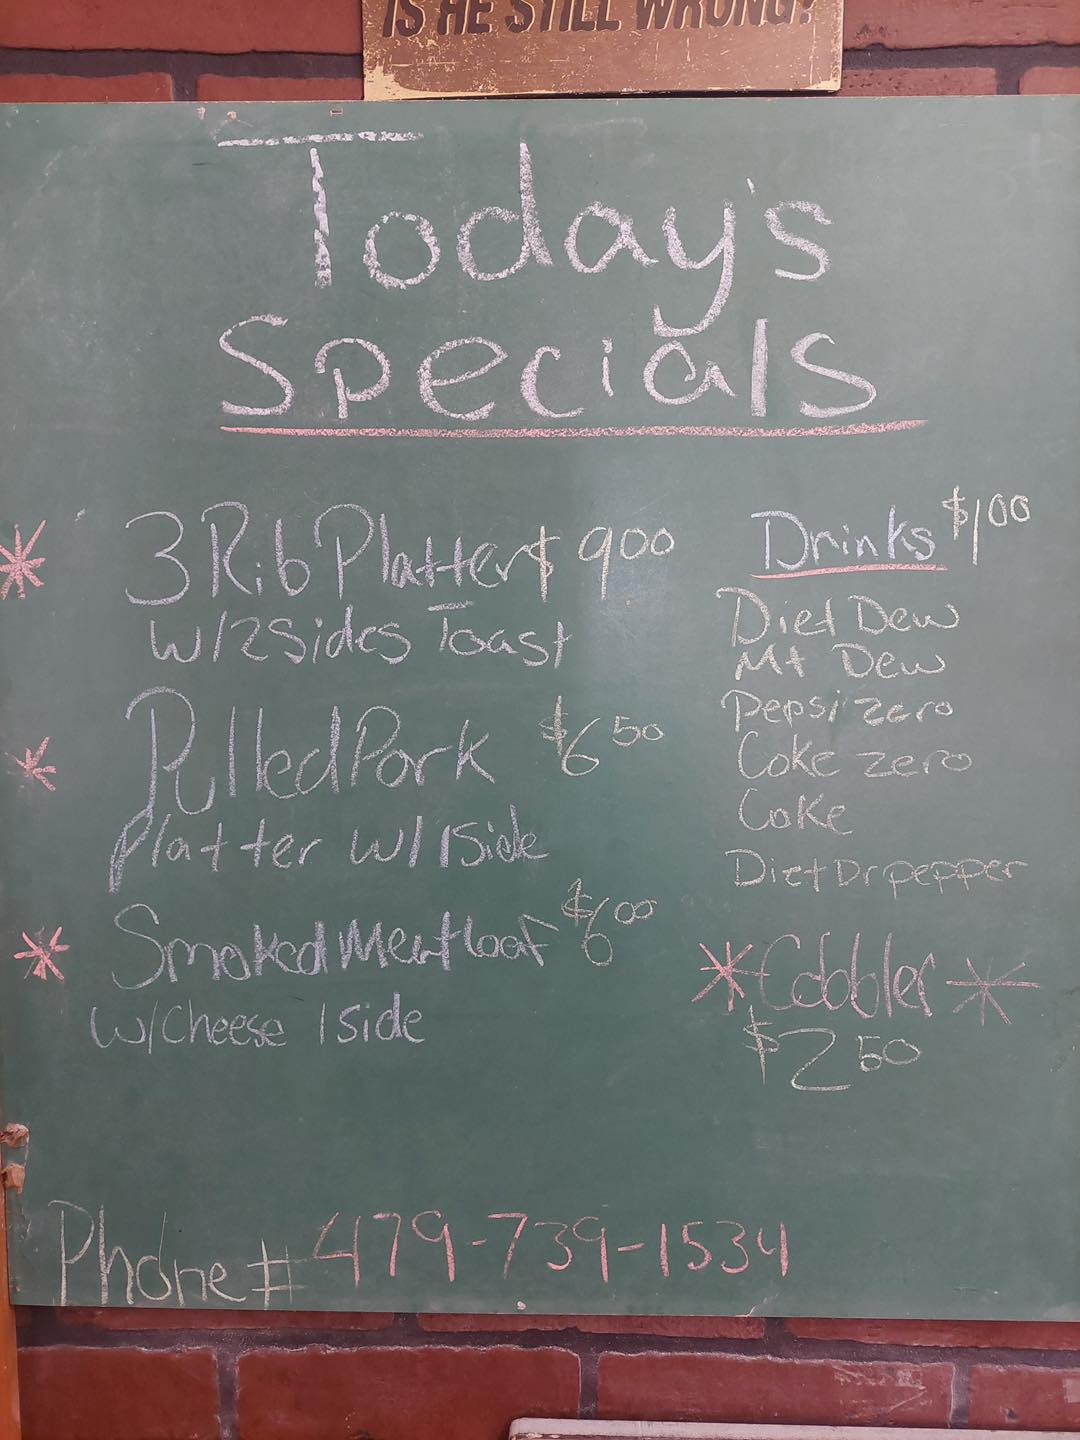 IS HE STILL WRONG?
Today's
Specials
3 Rib Platter $900
w/2 sides Toast
Pulled Pork $6 50
Platter w/ 1 side
Smoked Meatloaf $6 00
w/Cheese 1 side
Drinks $1 00
Diet Dew
Mt Dew
Pepsi zero
Coke zero
Coke
Diet Dr pepper
Cobbler
$2 50
Phone # 479-739-1534